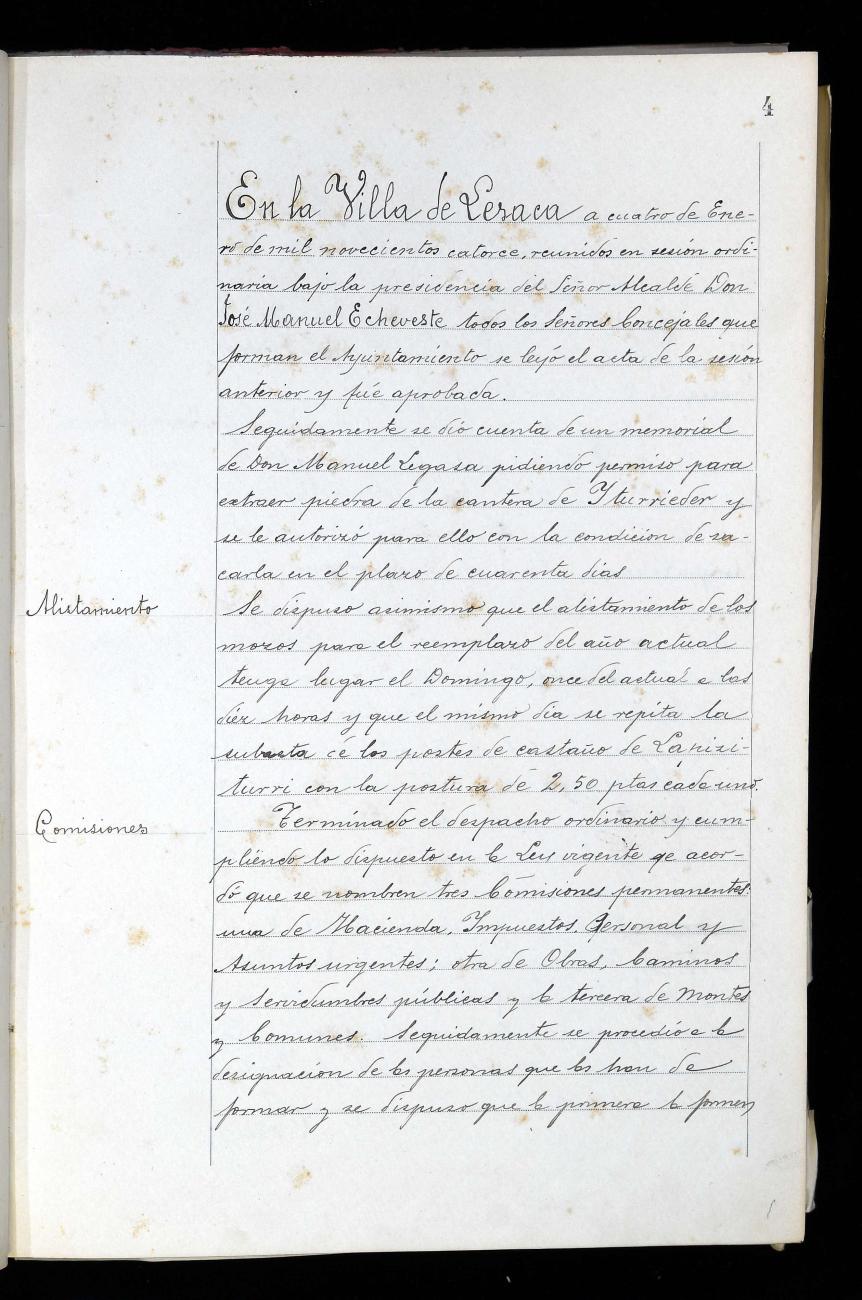 4
En la Villa de Lesaca a cuatro de Ene-
ro de mil novecientos catorce, reunidos en sesión ordi-
naria bajo la presidencia del Señor Alcalde Don
José Manuel Echeveste todos los Señores Concejales que
forman el Ayuntamiento se leyó el acta de la sesión
anterior y fué aprobada.
Seguidamente se dió cuenta de un memorial
de Don Manuel Legasa pidiendo permiso para
extraer piedra de la cantera de Yturrieder y
se le autorizó para ello con la condición de sa-
carla en el plazo de cuarenta dias
Alistamiento
Se dispuso asimismo que el alistamiento de los
mozos para el reemplazo del año actual
tenga lugar el Domingo, once del actual a las
diez horas y que el mismo dia se repita la
subasta de los postes de castaño de Lapizi-
turri con la postura de 2,50 ptas cada uno.
Comisiones
Terminado el despacho ordinario y cum-
pliendo lo dispuesto en la Ley vigente se acor-
dó que se nombren tres Comisiones permanentes:
una de Hacienda, Impuestos, Personal y
Asuntos urgentes; otra de Obras, Caminos
y Servidumbres públicas y la tercera de Montes
y Comunes. Seguidamente se procedió a la
designación de las personas que las han de
formar y se dispuso que la primera la formen